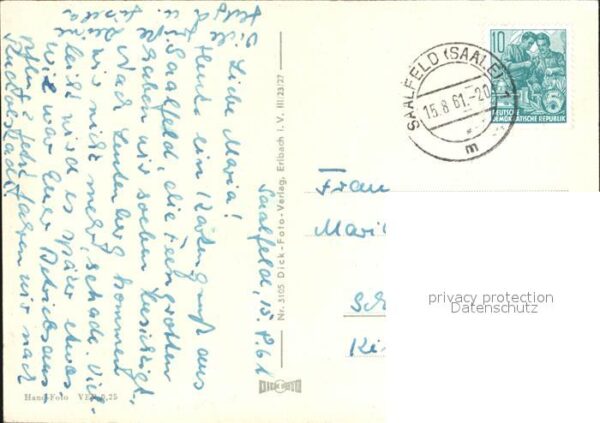 Saalfeld, 15.8.61
Liebe Maria!
Heute ein Kartengruß aus
Saalfeld, die Feengrotten
haben wir soeben besichtigt,
Nach Leutenberg kommen
wir nicht mehr, schade. Viel-
leicht wird es später etwas.
Wie war Euer Betriebsaus-
flug? Jetzt fahren wir nach
Rudolstadt.
Viele
u.
Deine
Nr. 3105 Dick-Foto-Verlag, Erlbach i. V. III/23/27
DICK FOTO
Hand-Foto VEB 0,25
SAALFELD (SAALE) 1
15.8.61.-20
m
10
DEUTSCHE
DEMOKRATISCHE REPUBLIK
Frau
Mari
Sch
Ki
privacy protection
Datenschutz